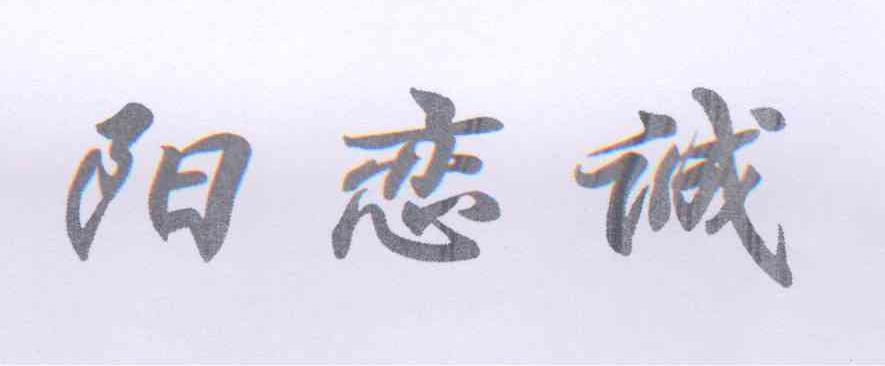 阳恋诚